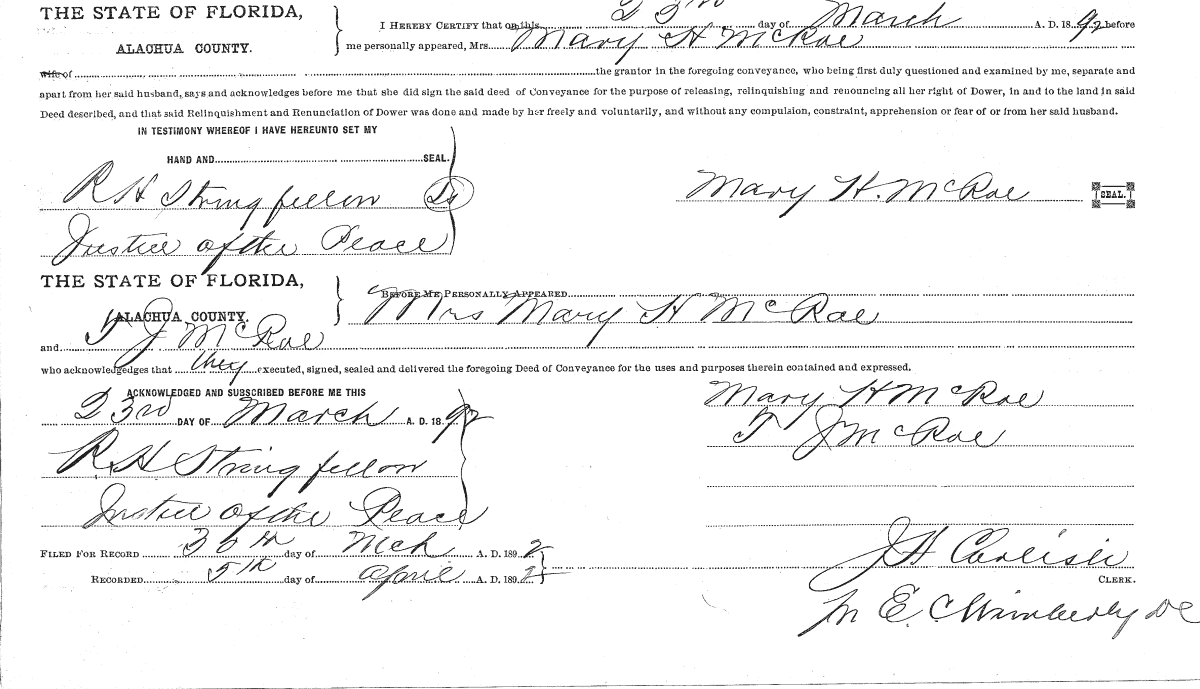 THE STATE OF FLORIDA,
ALACHUA COUNTY.
I HEREBY CERTIFY that on this 23rd day of March A. D. 1892 before
me personally appeared, Mrs. Mary H McRae
wife of the grantor in the foregoing conveyance, who being first duly questioned and examined by me, separate and
apart from her said husband, says and acknowledges before me that she did sign the said deed of Conveyance for the purpose of releasing, relinquishing and renouncing all her right of Dower, in and to the land in said
Deed described, and that said Relinquishment and Renunciation of Dower was done and made by her freely and voluntarily, and without any compulsion, constraint, apprehension or fear of or from her said husband.
IN TESTIMONY WHEREOF I HAVE HEREUNTO SET MY
HAND AND SEAL.
R H Stringfellow
Mary H. McRae SEAL.
Justice of the Peace
THE STATE OF FLORIDA,
ALACHUA COUNTY.
BEFORE ME PERSONALLY APPEARED
Mrs Mary H McRae
and J McRae
who acknowledges that they executed, signed, sealed and delivered the foregoing Deed of Conveyance for the uses and purposes therein contained and expressed.
ACKNOWLEDGED AND SUBSCRIBED BEFORE ME THIS
Mary H McRae
23rd DAY OF March A. D. 1892
J McRae
R. H Stringfellow
Justice of the Peace
FILED FOR RECORD 30th day of Mch A. D. 1892
J H Carlisle
CLERK.
RECORDED 5th day of April A. D. 1892
M E. Wimberly DC